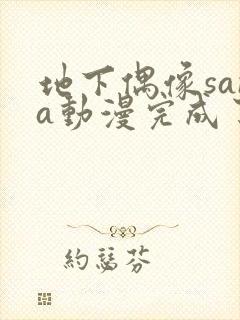 地下偶像sa
a動漫完成
約瑟芬